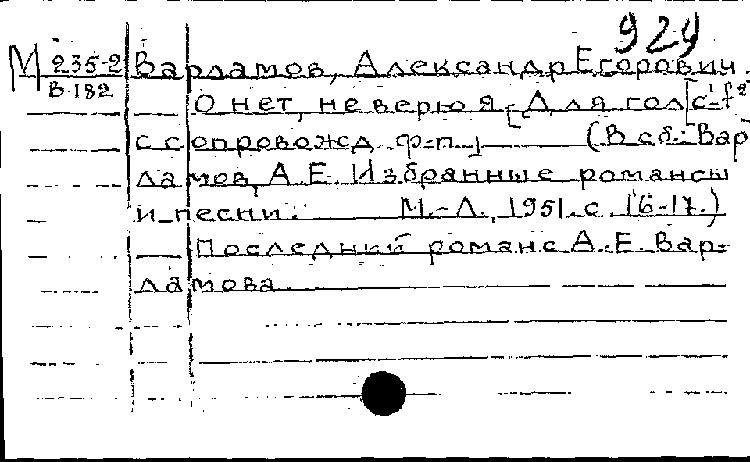 929
М 235-2 Варламов, Александр Егорович.
В-182
О нет, не верю я. [Для гол. [c'-f²]
с сопровожд. ф-п.] (В сб.: Вар-
ламов, А.Е. Избранные романсы
и песни. М.-Л., 1951. с. 16-17.)
Последний романс А.Е. Вар-
ламова.